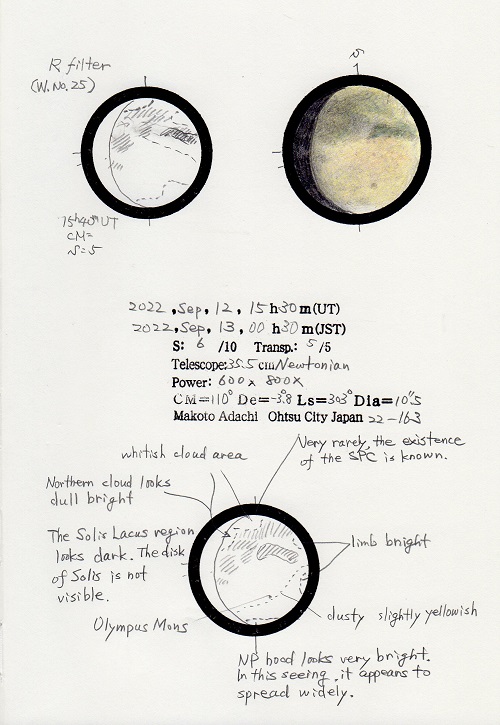 R filter
(W. No. 25)
S
15h40m UT
CM=
S=5
2022, Sep, 12, 15 h30 m(UT)
2022, Sep, 13, 00 h30 m(JST)
S: 6 /10 Transp.: 5 /5
Telescope: 35.5 cm Newtonian
Power: 600x 800x
CM=110° De=-3.8 Ls=303° Dia=10"5
Makoto Adachi Ohtsu City Japan 22-163
Very rarely, the existence
of the SPC is known.
whitish cloud area
Northern cloud looks
dull bright
The Solis Lacus region
looks dark. The disk
of Solis is not
visible.
limb bright
Olympus Mons
dusty slightly yellowish
NP hood looks very bright.
In this seeing, it appears to
spread widely.